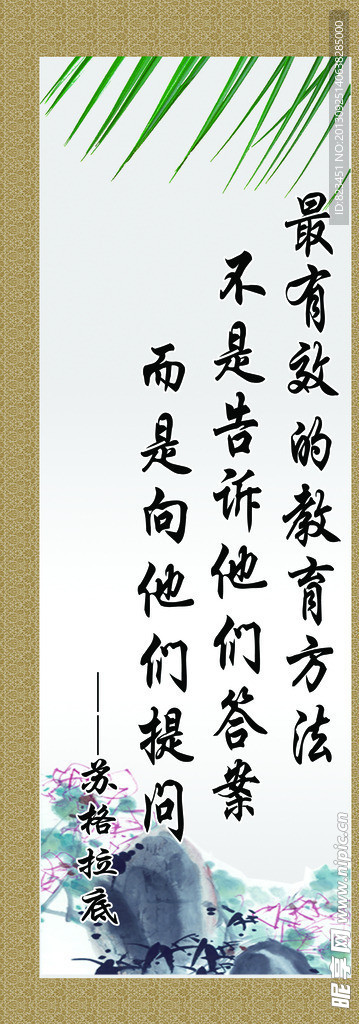 最有效的教育方法
不是告诉他们答案
而是向他们提问
——苏格拉底
ID:823451 NO:20130925140638285000
昵享网 www.nipic.cn